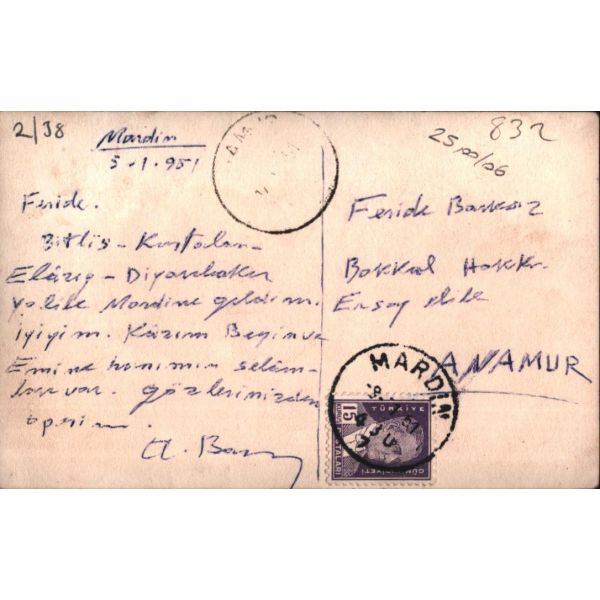 2/38
Mardin
5-1-951
832
Feride.
Bitlis - Kurtalan -
Elâzığ - Diyarbakır
yolile Mardine geldim.
iyiyim. Kâzım Beyin ve
Emine hanımın selâm-
ları var. gözlerinizden
öperim.
Feride
Bakkal Hakkı
Ersoy elile
ANAMUR
MARDİN
TÜRKİYE
15
KURUŞ
POSTALARI
CUMHURİYETİ